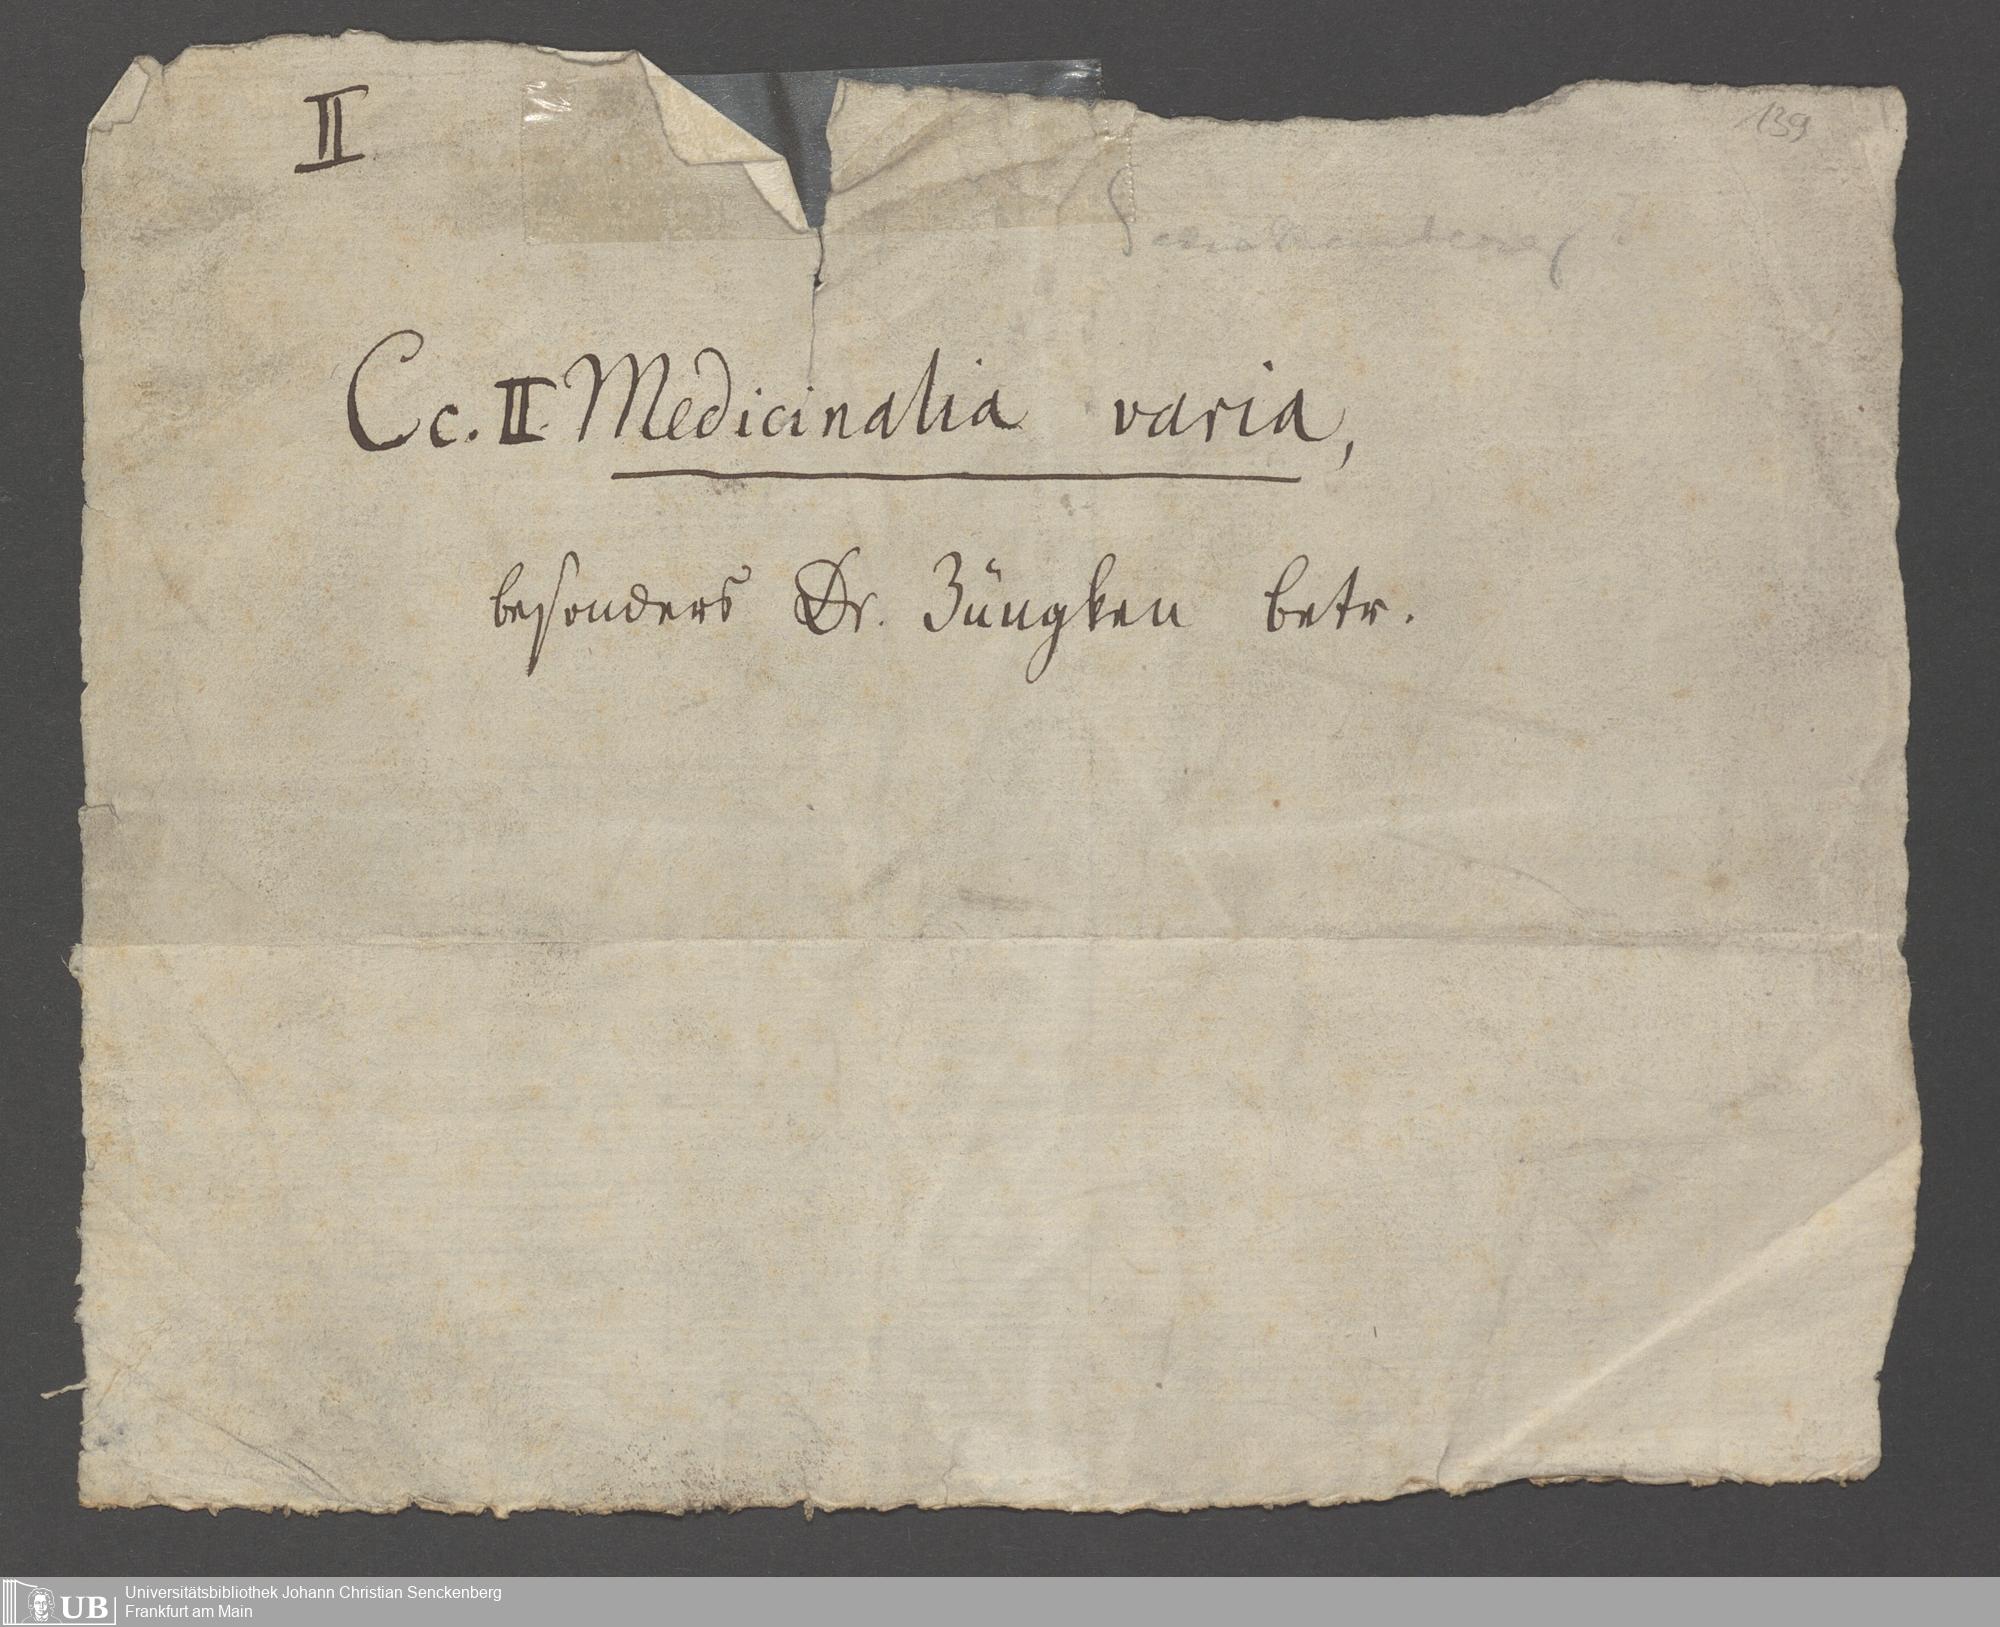 II
139
Cc. II Medicinalia varia,
besonders Dr. Jüngken betr.
UB Universitätsbibliothek Johann Christian Senckenberg
Frankfurt am Main